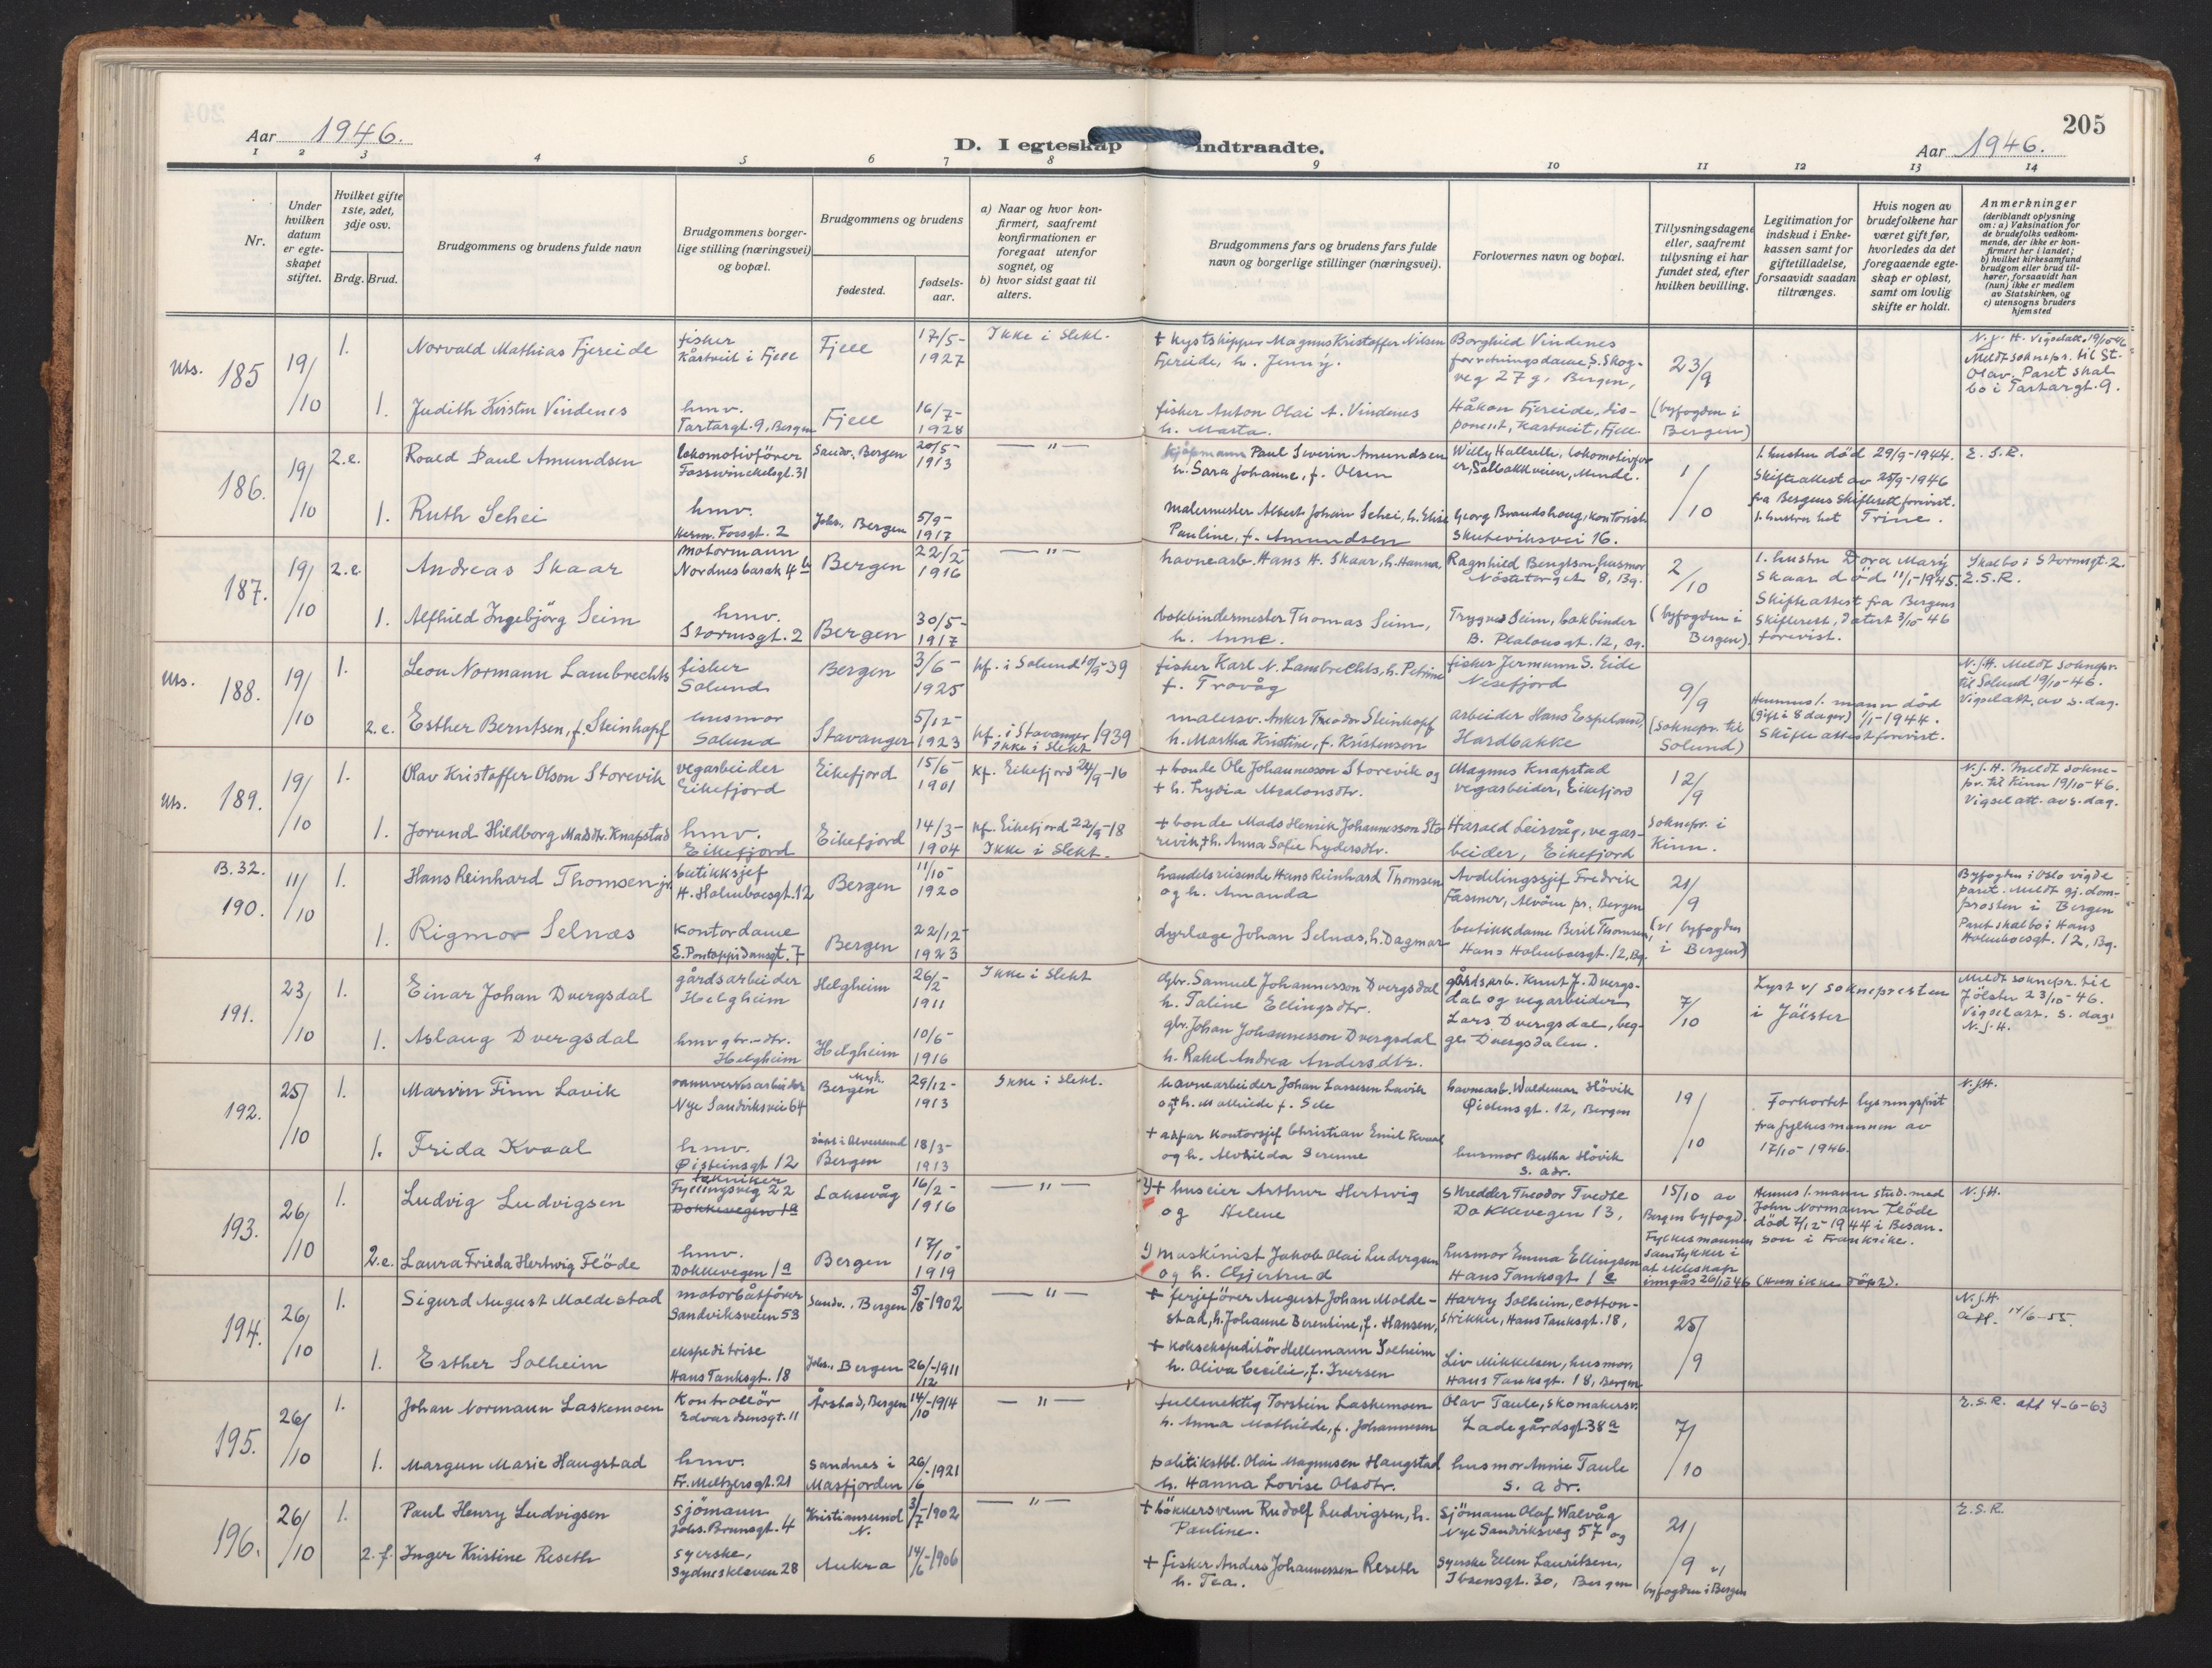 205
Aar 1946.
D. I egteskap indtraadte.
Aar 1946.
1 2 3 4 5 6 7 8 9 10 11 12 13 14
Nr.
Under hvilken datum er egteskapet stiftet.
Hvilket gifte 1ste, 2det, 3dje osv.
Brdg. Brud.
Brudgommens og brudens fulde navn
Brudgommens borgerlige stilling (næringsvei) og bopæl.
Brudgommens og brudens
fødested.
fødselsaar.
a) Naar og hvor konfirmert, saafremt konfirmationen er foregaat utenfor sognet, og
b) hvor sidst gaat til alters.
Brudgommens fars og brudens fars fulde navn og borgerlige stillinger (næringsvei).
Forlovernes navn og bopæl.
Tillysningsdagene eller, saafremt tillysning ei har fundet sted, efter hvilken bevilling.
Legitimation for indskud i Enkekassen samt for giftetilladelse, forsaavidt saadan tiltrænges.
Hvis nogen av brudefolkene har været gift før, hvorledes da det foregaaende egteskap er opløst, samt om lovlig skifte er holdt.
Anmerkninger
(deriblandt oplysning om: a) Vaksination for de brudefolks vedkommende, der ikke er konfirmert her i landet; b) hvilket kirkesamfund brudgom eller brud tilhører, forsaavidt han (hun) ikke er medlem av Statskirken, og c) utensogns bruders hjemsted
Uts. 185 19/10 1. Norvald Mathias Fjereide fisker Kårtveit i Fjell Fjell 17/5-1927 Ikke i slekt. + kystskipper Magnus Kristoffer Nilsen Fjereide, h. Jenny. Borghild Vindenes forretningsdame, S. Skogveg 27 g, Bergen, 23/9 N.J.H. Vigselatt. 19/10-46 Meldt soknepr. til St. Olav. Paret skal bo i Tartargt. 9.
1. Judith Kristin Vindenes hmv. Tartargt. 9, Bergen Fjell 16/7-1928 fisker Anton Olai A. Vindenes h. Marta. Håkon Fjereide, disponent, Kartveit, Fjell (byfogden i Bergen)
186. 19/10 2.e. Roald Paul Amundsen lokomotivfører Fosswinckelsgt. 31 Sandv., Bergen 20/5-1913 — " — kjøpmann Paul Severin Amundsen h. Sara Johanne, f. Olsen Willy Hallrelle, lokomotivfører, Solbakkveien, Minde. 1/10 1. hustru død 29/9-1944. Skifteattest av 25/9-1946 fra Bergens Skifterett forevist. 1. hustru het Trine. E.S.R.
1. Ruth Schei hmv. Herm. Fossgt. 2 Johs., Bergen 5/9-1917 malermester Albert Johan Schei, h. Elise Pauline, f. Amundsen Georg Brandshaug, kontorist Skuteviksvei 16.
187. 19/10 2.e. Andreas Skaar motormann Nordnesbarak 4 b Bergen 22/2-1916 — " — havnearb. Hans H. Skaar, h. Hanna Ragnhild Bengtson, husmor Nöstetorget 8, Bg. 2/10 1. hustru Dora Mary Skaar død 11/1-1945. Skifteattest fra Bergens Skifterett, datert 3/10-46 forevist. Skal bo i Stormsgt. 2. E.S.R.
1. Alfhild Ingebjörg Seim hmv. Stormsgt. 2 Bergen 30/5-1917 bokbindermester Thomas Seim, h. Anne. Trygve Seim, bokbinder B. gt. 12, Bg. (byfogden i Bergen)
Uts. 188. 19/10 1. Leon Normann Lambrechts fisker Solund Bergen 3/6-1925 kf. i Solund 10/9-39 fisker Karl N. Lambrechts, h. Petrine f. Trovåg fisker Jermann S. Eide Nesefjord 9/9 Hennes 1. mann död (gift i 8 dager) 1/1-1944. Skifteattest forevist. N.J.H. Meldt soknepr. til Solund 19/10-46. Vigselatt. av s. dag.
2.e. Esther Berntsen, f. Steinkopf husmor Solund Stavanger 5/12-1923 kf. i Stavanger 1939 Ikke i slekt malersv. Anker Theodor Steinkopf h. Martha Kristine, f. Kristensen arbeider Hans Espeland, Hardbakke (soknepr. til Solund)
Uts. 189. 19/10 1. Olav Kristoffer Olson Storevik vegarbeider Eikefjord Eikefjord 15/6-1901 Kf. Eikefjord 24/9-16 + bonde Ole Johannesson Storevik og + h. Lydia Absalonsdtr. Magnus Knapstad vegarbeider, Eikefjord 12/9 N.J.H. Meldt soknepr. til Kinn 19/10-46. Vigselatt. av s. dag.
1. Jorund Hildborg Madsdtr. Knapstad hmv. Eikefjord Eikefjord 14/3-1904 kf. Eikefjord 22/9-18 Ikke i slekt. + bonde Mads Henrik Johannesson Storevik, + h. Anna Sofie Lydersdtr. Harald Leisvåg, vegarbeider, Eikefjord Soknepr. i Kinn.
B. 32. 190. 11/10 1. Hans Reinhard Thomsen jr. butikksjef H. Holmboesgt. 12 Bergen 11/10-1920 handelsreisende Hans Reinhard Thomsen og h. Amanda Avdelingssjef Fredrik Fasmer, Alvöen pr. Bergen 21/9 Byfogden i Oslo vigde paret. Meldt gj. domprosten i Bergen Paret skal bo i Hans Holmboesgt. 12, Bg.
1. Rigmor Selnæs Kontordame E. Pontoppidansgt. 7 Bergen 22/12-1923 dyrlæge Johan Selnæs, h. Dagmar butikkdame Berit Thomsen, Hans Holmboesgt. 12, Bg. (v/ byfogden i Bergen)
191. 23/10 1. Einar Johan Dvergsdal gårdsarbeider Helgheim Helgheim 26/2-1911 Ikke i slekt gbr. Samuel Johannesson Dvergsdal h. Taline Ellingsdtr. gårdsarb. Knut J. Dvergsdal og vegarbeider Lars Dvergsdal, begge Dvergsdalen. 7/10 Lyst v/ soknepresten i Jölster Meldt soknepr. til Jölster 23/10-46. Vigselatt. s. dag. N.J.H.
1. Aslaug Dvergsdal hmv. gbr.-dtr. Helgheim Helgheim 10/6-1916 gbr. Johan Johannesson Dvergsdal h. Rakel Andrea Andersdtr.
192. 25/10 1. Marvin Finn Lavik Nye Sandviksvei 64 Bergen Nyk. 29/12-1913 Ikke i slekt. havnearbeider Johan Lassesen Lavik og + h. Mathilde f. Sele havnearb. Waldemar Hövik Øistensgt. 12, Bergen 19/10 Forkortet lysningsfrist fra fylkesmannen av 17/10-1946. N.J.H.
1. Frida Kvaal hmv. Øisteinsgt 12 döpt i Alversund Bergen 18/3-1913 + adfar kontorsjef Christian Emil Kvaal og h. Alvhilda Serenne husmor Bertha Hövik s. adr.
193. 26/10 1. Ludvig Ludvigsen tekniker Fyllingsveg 22 Dokkevegen 1a Laksevåg 16/2-1916 — " — 2) + huseier Arthur Hertwig og Helene skredder Theodor Tvedte Dokkevegen 13, 15/10 av Bergen byfogd. Fylkesmannen samtykker i at ekteskap inngås 26/10-46 Hennes 1. mann stud. med John Normann Flöde död 7/12-1944 i Besanson i Frankrike. (Hun ikke döpt). N.J.H.
2.e. Laura Frieda Hertwig Flöde hmv. Dokkevegen 1a Bergen 17/10-1919 1) maskinist Jakob Olai Ludvigsen og h. Gjertrud husmor Emma Ellingsen Hans Tanksgt. 1 a
194. 26/10 1. Sigurd August Moldestad motorbåtförer Sandviksveien 53 Sandv., Bergen 5/8-1902 — " — + ferjeförer August Johan Moldestad, h. Johanne Berentine, f. Hansen, Harry Solheim, cottonstrikker, Hans Tanksgt. 18, 25/9 N.J.H. att. 14/6-55.
1. Esther Solheim ekspeditrise Hans Tanksgt. 18 Johs., Bergen 26/12-1911 + koksekspeditör Hellemann Solheim h. Oliva Cecilie, f. Iversen Liv Mikkelsen, husmor, Hans Tanksgt. 18, Bergen
195. 26/10 1. Johan Normann Laskemoen Kontrollör Edvardsensgt. 11 Årstad, Bergen 14/10-1914 — " — fullmektig Torstein Laskemoen h. Anna Mathilde, f. Johannesen Olav Taule, skomakersv. Ladegårdsgt. 38 a 7/10 E.S.R. att 4-6-63
1. Margun Marie Haugstad hmv. Fr. Meltzersgt. 21 Sandnes i Masfjorden 26/6-1921 politikstbl. Olai Magnusen Haugstad h. Hanna Lovise Olsdtr. husmor Annie Taule s. adr.
196. 26/10 1. Paul Henry Ludvigsen sjömann Johs. Brunsgt. 4 Kristiansund N. 3/7-1902 — " — + bökkersvenn Rudolf Ludvigsen, h. Pauline. Sjömann Olaf Walvåg Nye Sandviksveg 57 og 21/9 v/ byfogden i Bergen E.S.R.
2.f. Inger Kristine Reseth syerske, Sydneskleven 28 Aukra 14/6-1906 + fisker Anders Johannessen Reseth h. Tea. syerske Ellen Lauritsen, Ibsensgt. 30, Bergen